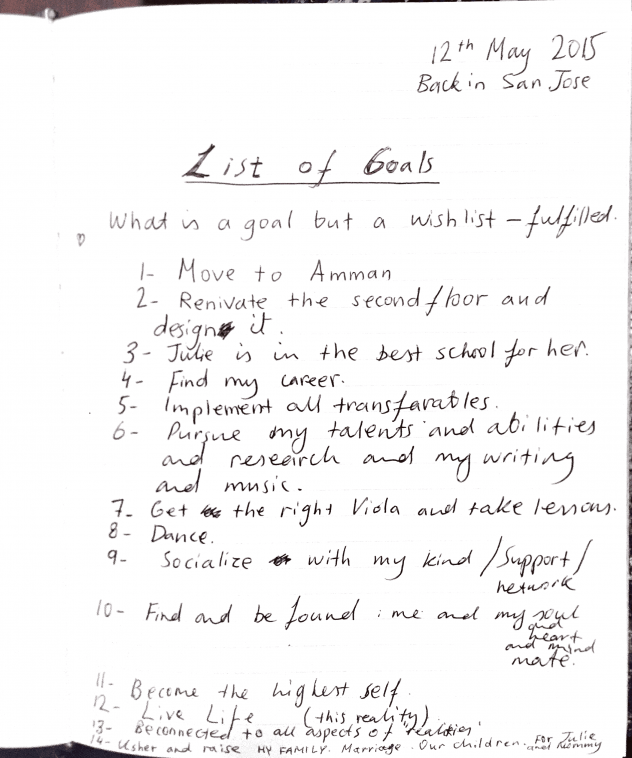 12th May 2015
Back in San Jose
List of Goals
What is a goal but a wishlist - fulfilled.
1- Move to Amman
2- Renivate the second floor and
design it.
3- Julie is in the best school for her.
4- Find my career.
5- Implement all transfarables.
6- Pursue my talents and abilities
and reseeirch and my writing
and music.
7- Get the right Viola and take lessons.
8- Dance.
9- Socialize with my kind /Support/
network
10- Find and be found : me and my soul
and
heart
and mind
mate.
11- Become the highest self.
12- Live Life (this reality).
13- Be connected to all aspects of "realities"
14- Usher and raise MY FAMILY. Marriage. Our children. For Julie
and Mommy